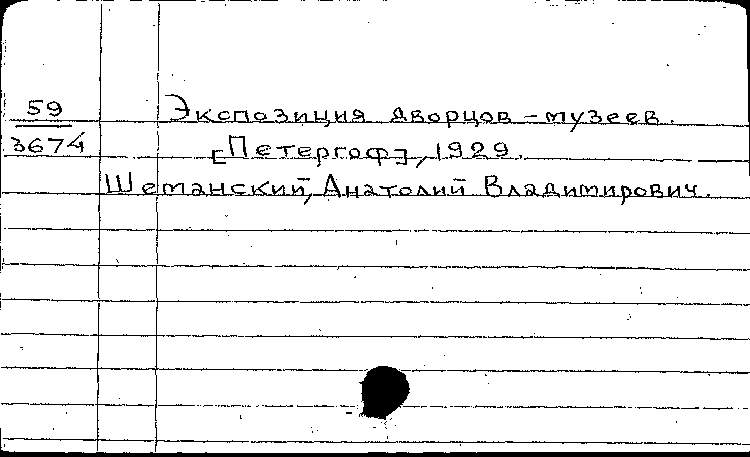 59
3674
Экспозиция дворцов-музеев.
[Петергоф], 1929.
Шеманский, Анатолий Владимирович.